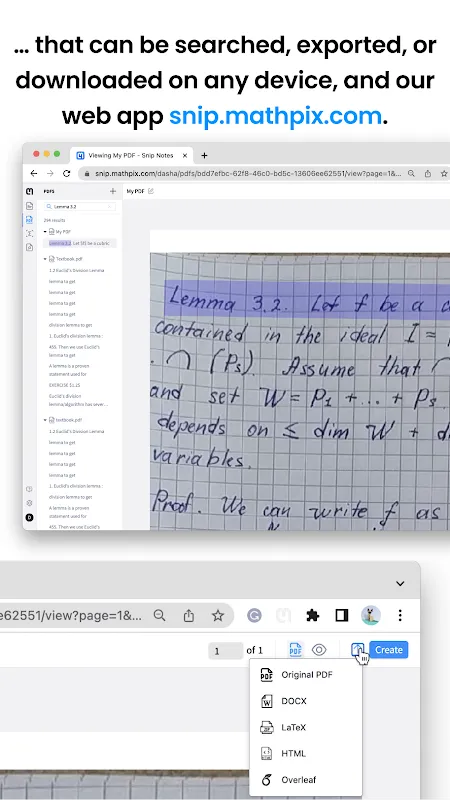 ... that can be searched, exported, or
downloaded on any device, and our
web app snip.mathpix.com.
Viewing My PDF - Snip Notes
snip.mathpix.com/dasha/pdfs/bdd7efbc-62f8-46c0-bd5c-13606ee62551/view?page=1&...
PDFS
My PDF
Lemma 3.2
294 results
My PDF
Lemma 3.2. Let \(f\) be a cubic
Textbook pdf
1.2 Euclid's Division Lemma
lemma to get
lemma to get
lemma to get
lemma to get
division lemma to get
1. Euclid's division lemma :
455. Then we use Euclid's
lemma to get
A lemma is a proven
statement used for
EXERCISE 51.25
Euclid's division
lemma/algorithm has sever...
textbook pdf
1.2 Euclid's Division Lemma
lemma to get
lemma to get
lemma to get
lemma to get
1. Euclid's division lemma :
division lemma to get
A lemma is a proven
statement used for
455. Then we use Euclid's
Lemma 3.2. Let f be a c
contained in the ideal I =
. ∩ (Ps). Assume that ∩
and set W = P1 + ... + Ps
depends on ≤ dim W + d
variables.
Proof. We can write f as
ee62551/view?page=1&...
1 of 1
PDF
Create
Original PDF
DOCX
LaTeX
HTML
Overleaf